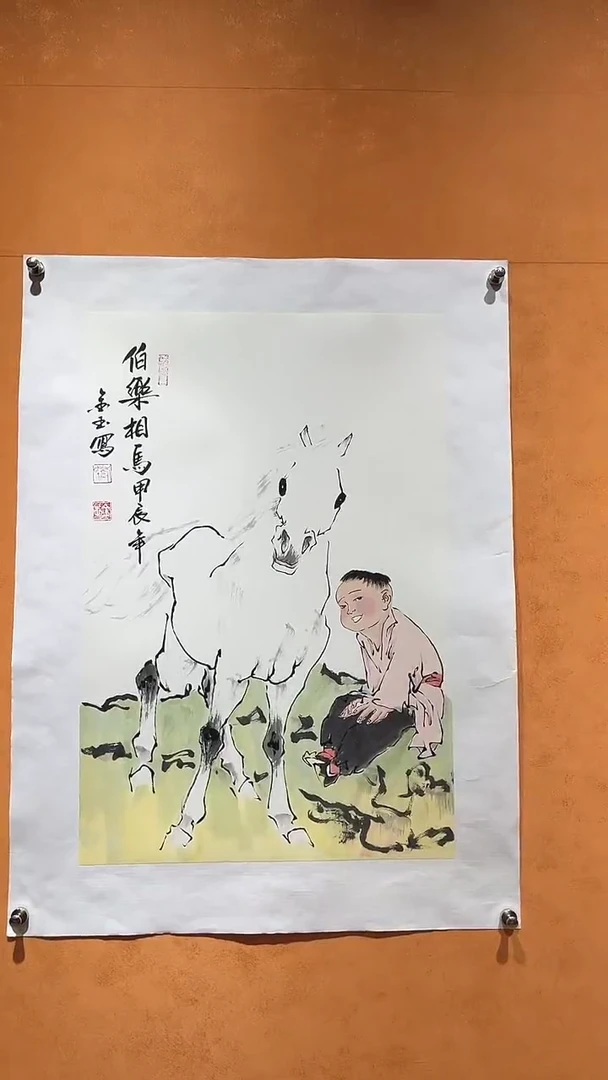 伯樂相馬甲辰年
金玉寫